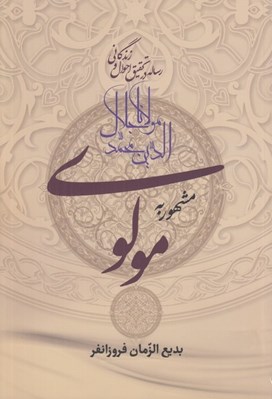 رساله در تحقیق احوال و زندگانی
مولانا جلال
الدین محمد
مشهور به
مولوی
بدیع الزّمان فروزانفر